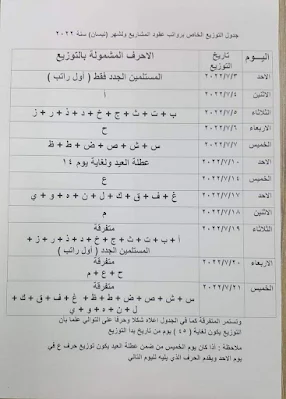 جدول التوزيع الخاص برواتب عقود المشاريع ولشهر (نيسان) سنة ٢٠٢٢
اليوم تاريخ التوزيع الاحرف المشمولة بالتوزيع
الاحد ٢٠٢٢/٧/٣ المستلمين الجدد فقط ( أول راتب )
الاثنين ٢٠٢٢/٧/٤ ا
الثلاثاء ٢٠٢٢/٧/٥ ب + ت + ث + ج + خ + د + ذ + ر + ز
الاربعاء ٢٠٢٢/٧/٦ ح
الخميس ٢٠٢٢/٧/٧ س + ش + ص + ض + ط + ظ
الاحد ٢٠٢٢/٧/١٠ عطلة العيد ولغاية يوم ١٤
الخميس ٢٠٢٢/٧/١٤ ع
الاحد ٢٠٢٢/٧/١٧ غ + ف + ق + ك + ل + ن + ه + و + ي
الاثنين ٢٠٢٢/٧/١٨ م
الثلاثاء ٢٠٢٢/٧/١٩ متفرقة
أ + ب + ت + ث + ج + خ + د + ذ + ر + ز +
المستلمين الجدد ( أول راتب )
الاربعاء ٢٠٢٢/٧/٢٠ متفرقة
ح + ع + م
الخميس ٢٠٢٢/٧/٢١ متفرقة
س + ش + ص + ض + ط + ظ + غ + ف + ق + ك +
ل + ن + ه + و + ي
وتستمر المتفرقة كما في الجدول اعلاه شكلا وحرفا على التوالي علما بأن
التوزيع يكون لغاية ( ٤٥ ) يوم من تاريخ بدا التوزيع
ملاحظة : اذا كان يوم الخميس من ضمن عطلة العيد يكون توزيع حرف ع في
يوم الاحد ويقدم الحرف الذي يليه لليوم التالي